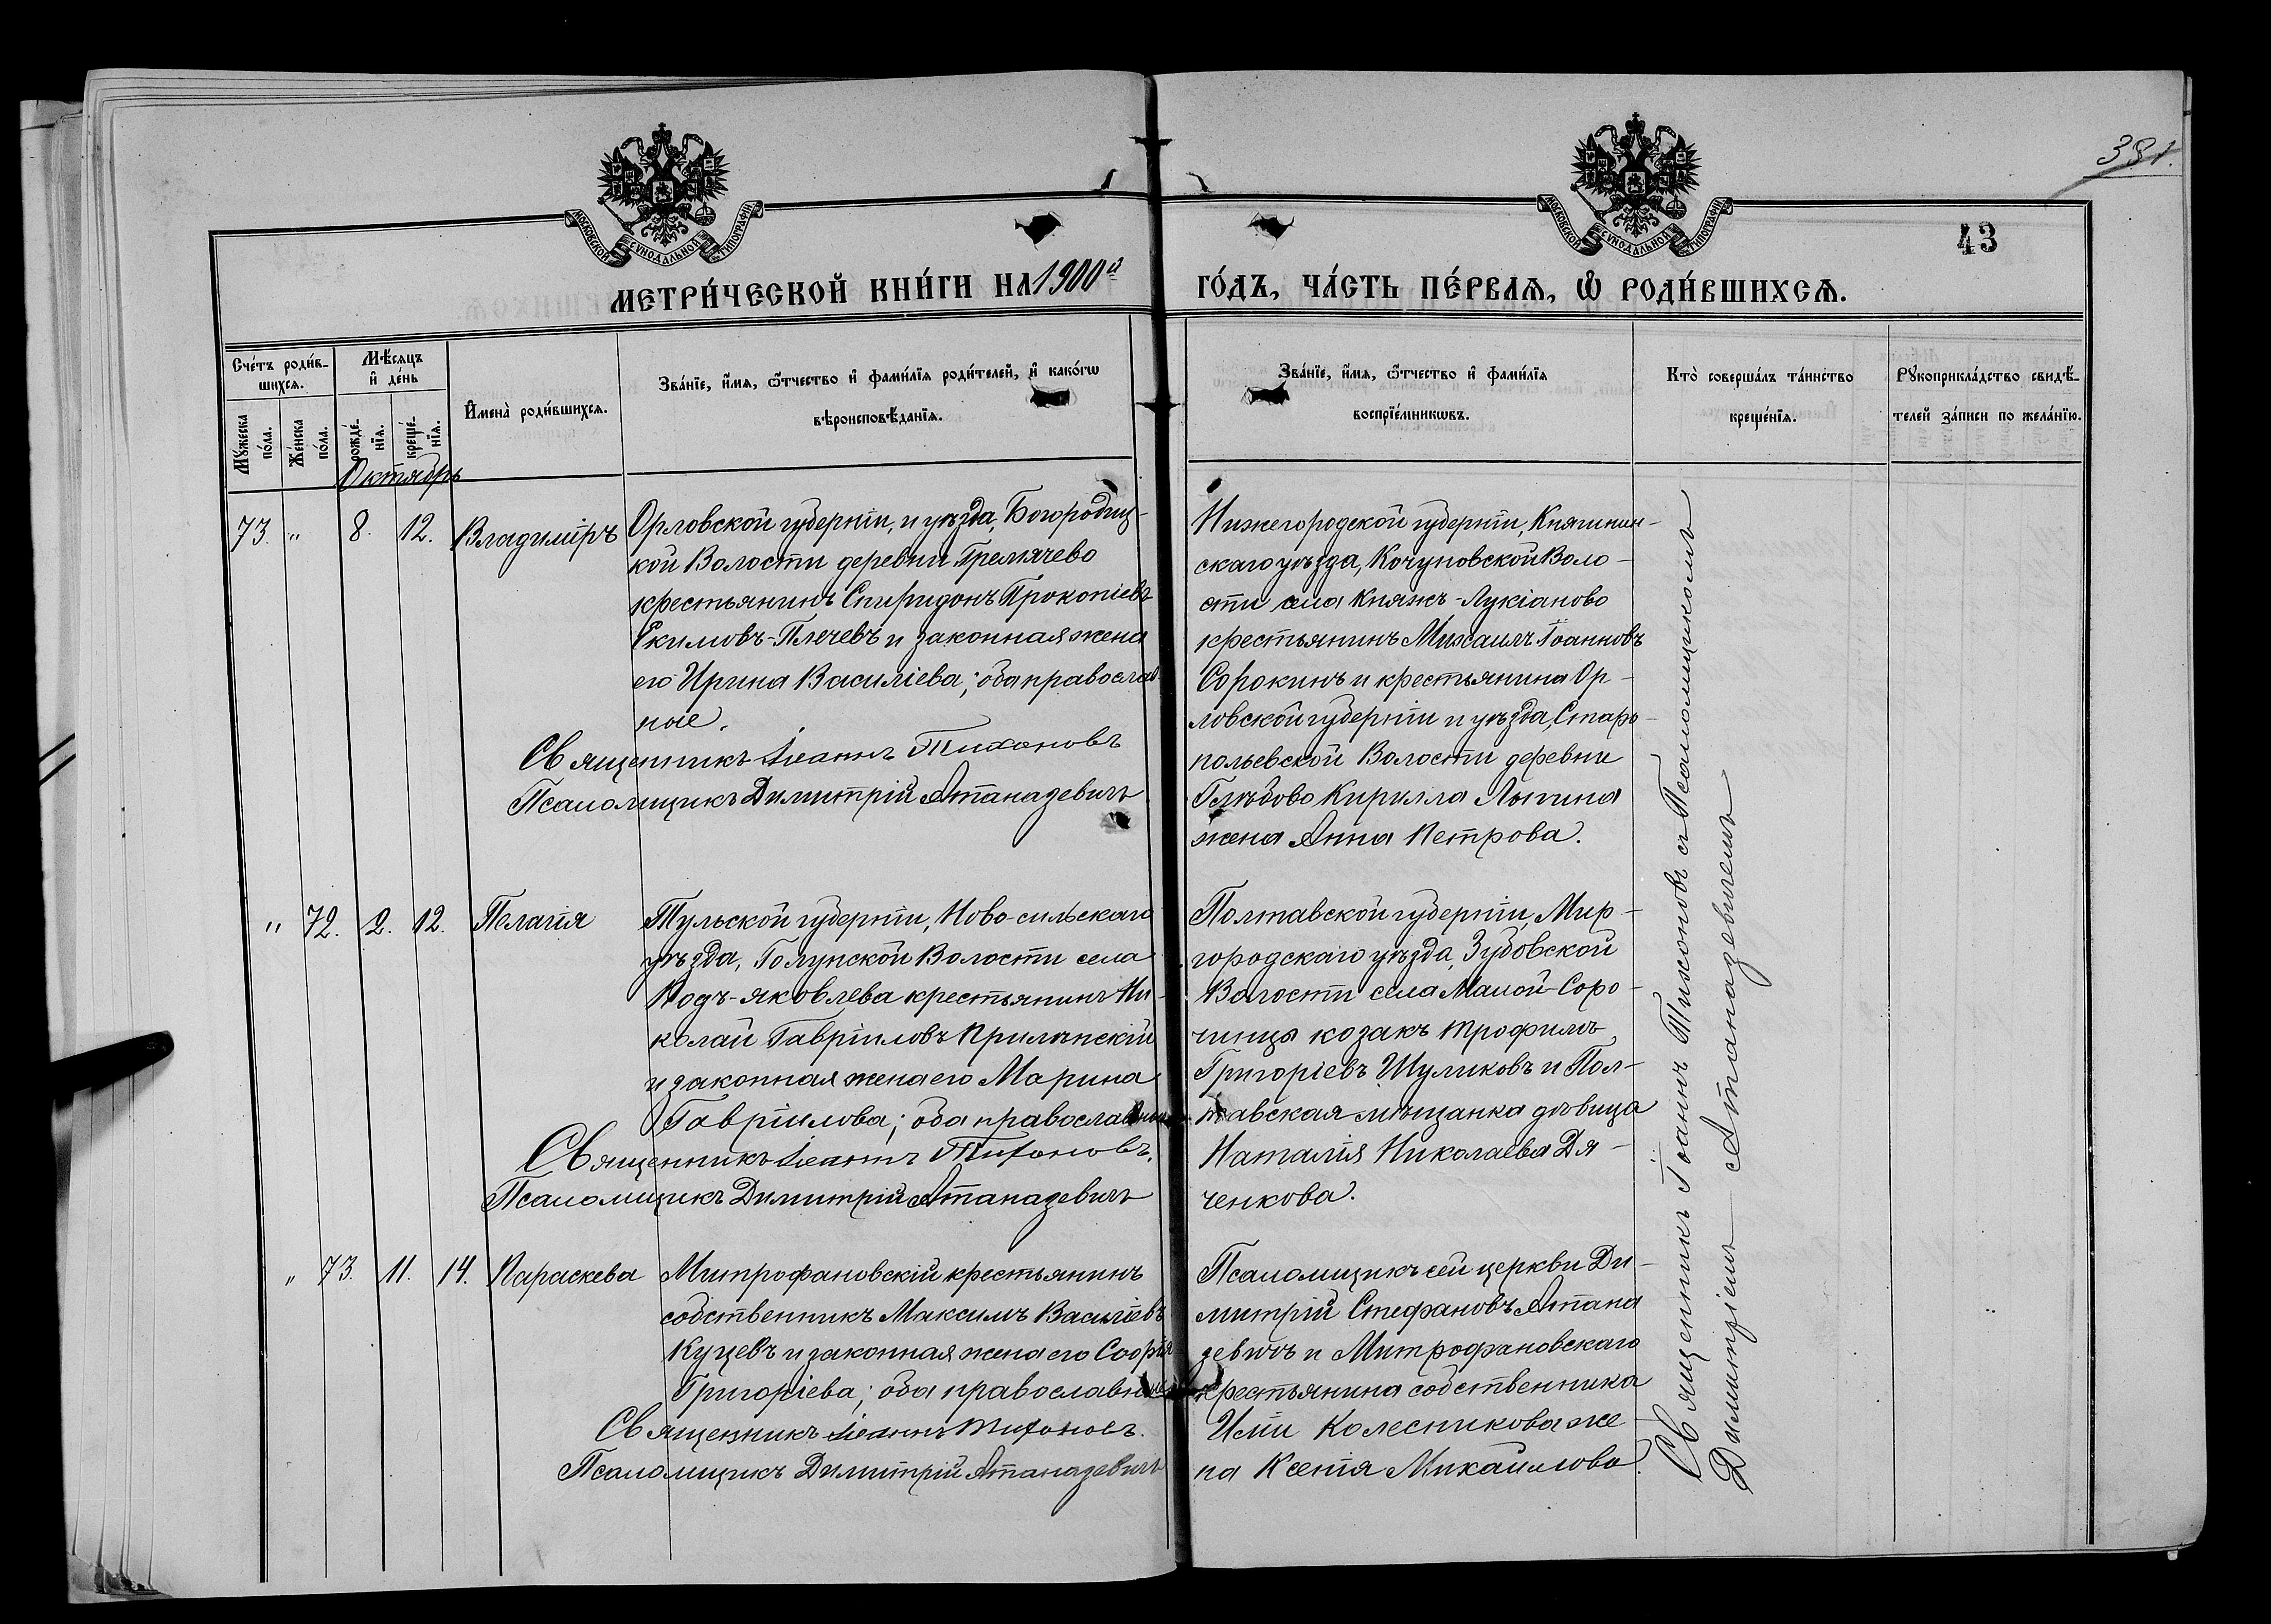 381.
43
МОСКОВСКОЙ СѴНОДАЛЬНОЙ ТИПОГРАФІИ
МОСКОВСКОЙ СѴНОДАЛЬНОЙ ТИПОГРАФІИ
МЕТРИ́ЧЕСКОЙ КНИ́ГИ НА 1900й ГО́ДЪ, ЧА́СТЬ ПЕ́РВАѦ, Ѡ҆ РОДИ́ВШИХСѦ.
Сче́тъ роди́в-
шихсѧ.
Мꙋжеска по́ла.
Же́нска по́ла.
Мѣ́сѧцъ
и҆ де́нь
рожде́-
нїѧ.
креще́-
нїѧ.
И҆мена̀ роди́вшихсѧ.
Зва́нїе, и҆́мѧ, ѻ҆́тчество и҆ фами́лїѧ роди́телей, и҆ како́гѡ
вѣроисповѣ́данїѧ.
Зва́нїе, и҆́мѧ, ѻ҆́тчество и҆ фами́лїѧ
воспрїе́мникѡвъ.
Кто̀ соверша́лъ та́инство
креще́нїѧ.
Рꙋкоприкла́дство свидѣ́-
телей за́писи по жела́нїю.
Октябрь
73. " 8. 12. Владиміръ
Орловской губерніи, и уѣзда, Богородиц-
кой Волости деревни Гремячево
крестьянинъ Спиридонъ Прокопіевъ
Екимовъ-Плечевъ и законная жена
его Ирина Василіева; оба православ-
ные.
Священникъ Іоаннъ Тихоновъ
Псаломщикъ Димитрій Атаназевичъ
Нижегородской губерніи, Княгинин-
скаго уѣзда, Кочуновской Воло-
сти села Княжъ-Лукіаново
крестьянинъ Михаилъ Іоанновъ
Сорокинъ и крестьянина Ор-
ловской губерніи и уѣзда, Старо-
польевской Волости деревни
Глѣбово Кирилла Лыпина
жена Анна Петрова.
" 72. 2. 12. Пелагія
Тульской губерніи, Ново-сильскаго
уѣзда, Голунской Волости села
Подъ-яковлева крестьянинъ Ни-
колай Гавріиловъ Прилѣпскій
и законная жена его Марина
Гавріилова; оба православные
Священникъ Іоаннъ Тихоновъ.
Псаломщикъ Димитрій Атаназевичъ
Полтавской губерніи, Мир-
городскаго уѣзда, Зубовской
Волости села Малой-Соро-
чинцы козакъ Трофимъ
Григоріевъ Шуликовъ и Пол-
тавская мѣщанка дѣвица
Наталія Николаева Дя-
ченкова.
" 73. 11. 14. Параскева
Митрофановскій крестьянинъ
собственникъ Максимъ Василіевъ
Куцевъ и законная жена его Софія
Григоріева; оба православные
Священникъ Іоаннъ Тихоновъ.
Псаломщикъ Димитрій Атаназевичъ
Псаломщикъ сей церкви Ди-
митрій Стефановъ Атана
зевичъ и Митрофановскаго
крестьянина собственника
Иліи Колесникова же
на Ксенія Михаилова.
Священникъ Іоаннъ Тихоновъ съ Псаломщикомъ
Димитріемъ Атаназевичемъ